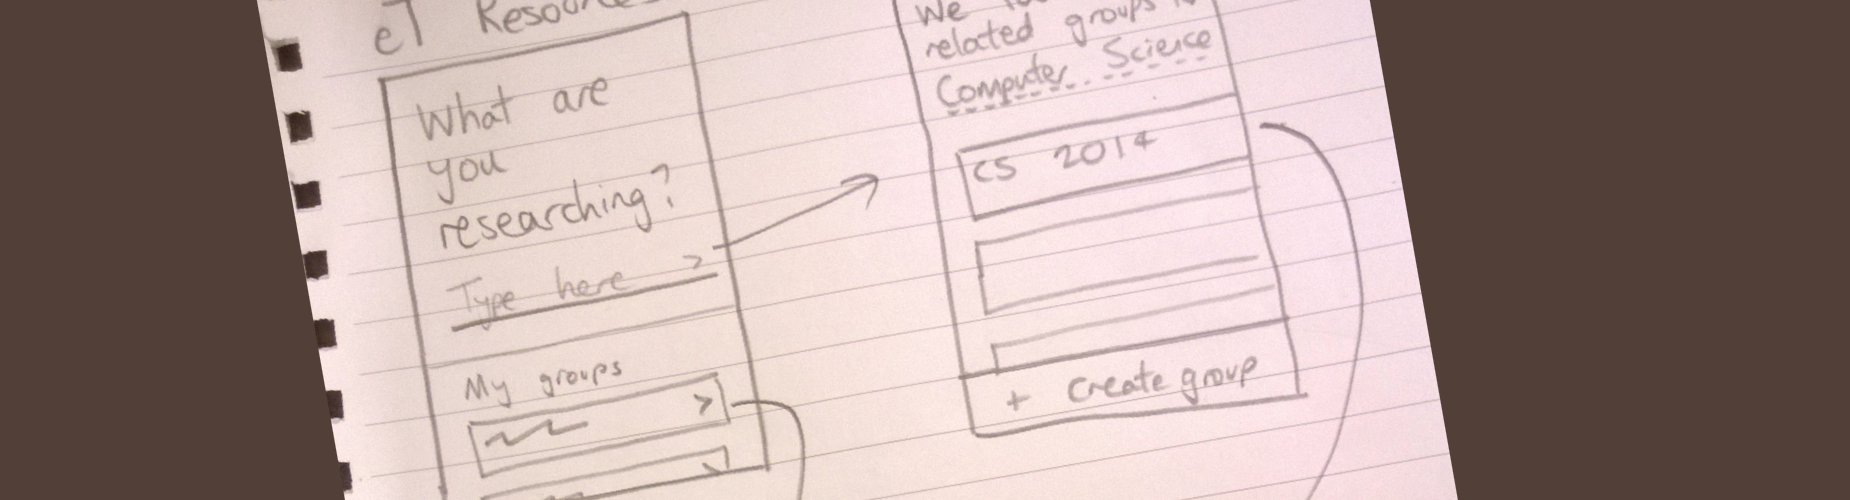 eT
What are
you
researching?
Type here >
My groups
>
We
related groups
Computer Science
CS 2014
+ Create group